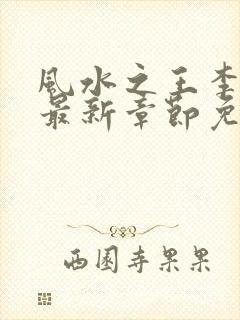 風水之王李
最新章節免
西園寺果果